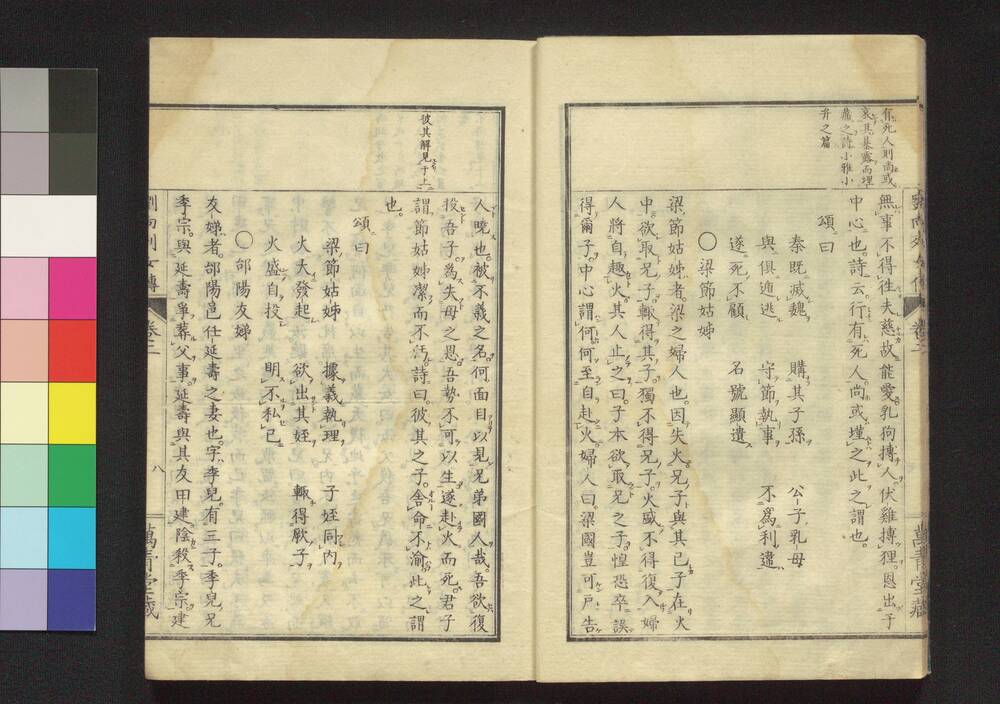 無事不得往夫慈故能愛乳狗搏人伏雞搏狸恩出于
中心也詩云行有死人尚或墐之此之謂也
頌曰
秦既滅魏 購其子孫 公子乳母
與俱遁逃 守節執事 不爲利違
遂死不顧 名號顯遺
〇梁節姑姊
梁節姑姊者梁之婦人也因失火兄子與其己子在火
中欲取兄子輙得其子獨不得兄子火盛不得復入婦
人將自趣火其人止之曰子本欲取兄之子惶恐卒誤
得爾子中心謂何何至自赴火婦人曰梁國豈可戸告
有死人則尚或
哀其暴露而埋
藏之詩小雅小
弁之篇
人曉也被不義之名何面目以見兄弟國人哉吾欲復
投吾子爲失母之恩吾勢不可以生遂赴火而死君子
謂節姑姊潔而不汙詩曰彼其之子舎命不渝此之謂
也
頌曰
梁節姑姊 據義執理 子姪同内
火大發起 欲出其姪 輙得厥子
火盛自投 明不私己
〇郃陽友娣
友娣者郃陽邑任延壽之妻也字季兒有三子季兒兄
季宗與延壽爭葬父事延壽與其友田建陰殺季宗建
彼其解見于上
劉向列女傳 卷二 八 萬青堂藏